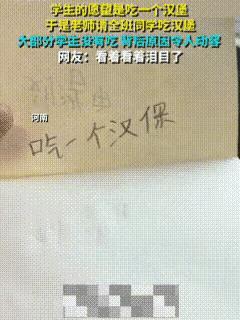 学生的愿望是吃一个汉堡
于是老师请全班同学吃汉堡
大部分学生没有吃 背后原因令人动容
网友：看着看着泪目了
河南
吃一个汉保